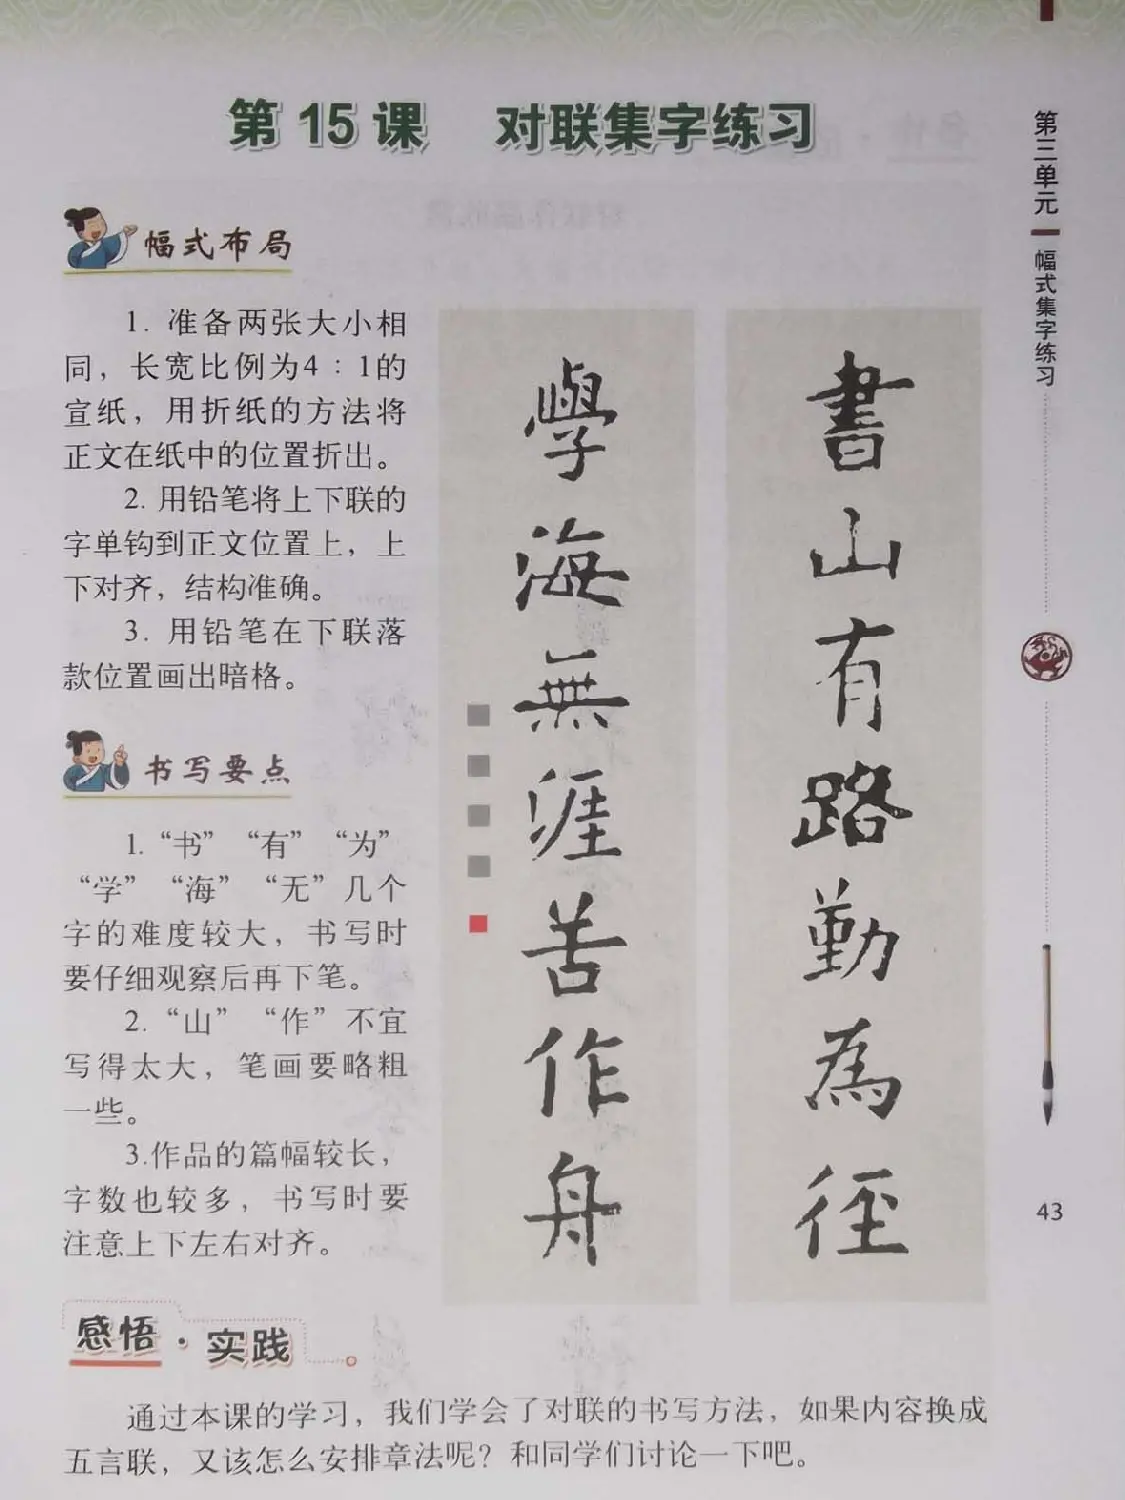 第15课 对联集字练习
幅式布局
1. 准备两张大小相
同，长宽比例为4：1的
宣纸，用折纸的方法将
正文在纸中的位置折出。
2. 用铅笔将上下联的
字单钩到正文位置上，上
下对齐，结构准确。
3. 用铅笔在下联落
款位置画出暗格。
书写要点
1.“书”“有”“为”
“学”“海”“无”几个
字的难度较大，书写时
要仔细观察后再下笔。
2.“山”“作”不宜
写得太大，笔画要略粗
一些。
3.作品的篇幅较长，
字数也较多，书写时要
注意上下左右对齐。
書山有路勤為徑
學海無涯苦作舟
感悟·实践
通过本课的学习，我们学会了对联的书写方法，如果内容换成
五言联，又该怎么安排章法呢？和同学们讨论一下吧。
第三单元
幅式集字练习
43